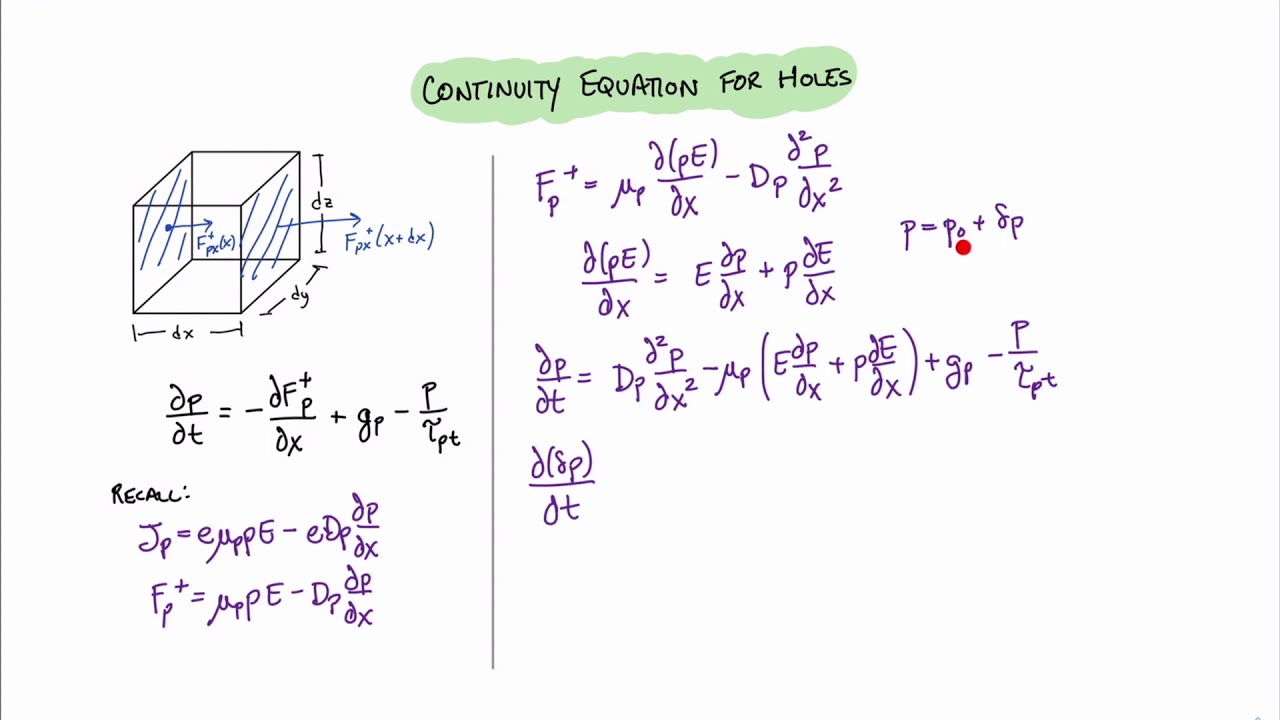 CONTINUITY EQUATION FOR HOLES
dz
F⁺ₚₓ(x)
Fₚₓ⁺(x+dx)
dy
dx
∂p/∂t = -∂F⁺ₚ/∂x + gₚ - p/τₚₜ
RECALL:
Jₚ = eμₚpE - eDₚ ∂p/∂x
Fₚ⁺ = μₚpE - Dₚ ∂p/∂x
Fₚ⁺ = μₚ ∂(pE)/∂x - Dₚ ∂²p/∂x²
p = p₀ + δp
∂(pE)/∂x = E ∂p/∂x + p ∂E/∂x
∂p/∂t = Dₚ ∂²p/∂x² - μₚ(E ∂p/∂x + p ∂E/∂x) + gₚ - p/τₚₜ
∂(δp)/∂t